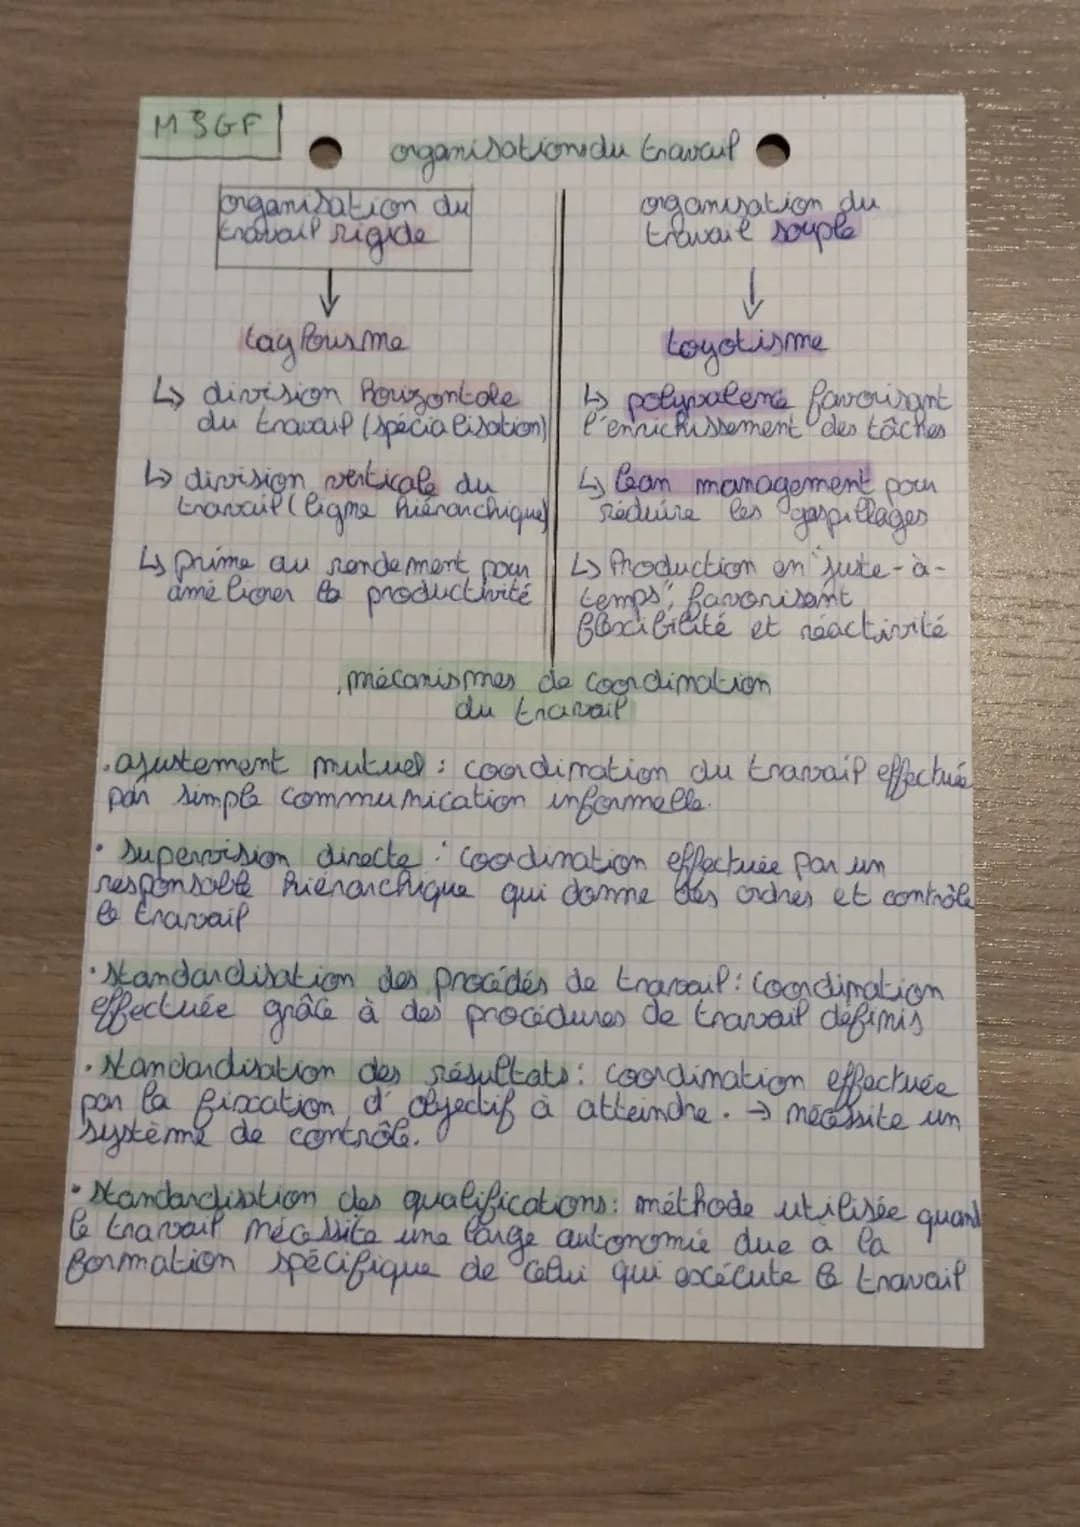 MSGF
organisation du travail
organisation du
travail rigide
taylorisme
↳ division horizontale
du travail (spécialisation)
↳ division verticale du
travail (ligne hiérarchique)
↳ prime au rendement pour
améliorer la productivité
organisation du
travail souple
toyotisme
↳ polyvalence favorisant
l'enrichissement des tâches
↳ lean management pour
réduire les gaspillages
↳ Production en "juste-à-
temps", favorisant
flexibilité et réactivité
mécanismes de coordination
du travail
• ajustement mutuel : coordination du travail effectuée
par simple communication informelle.
• supervision directe : coordination effectuée par un
responsable hiérarchique qui donne des ordres et contrôle
le travail
• standardisation des procédés de travail : coordination
effectuée grâce à des procédures de travail définis
• standardisation des résultats : coordination effectuée
par la fixation d'objectif à atteindre. → nécessite un
système de contrôle.
• standardisation des qualifications : méthode utilisée quand
le travail nécessite une large autonomie due a la
formation spécifique de celui qui exécute le travail